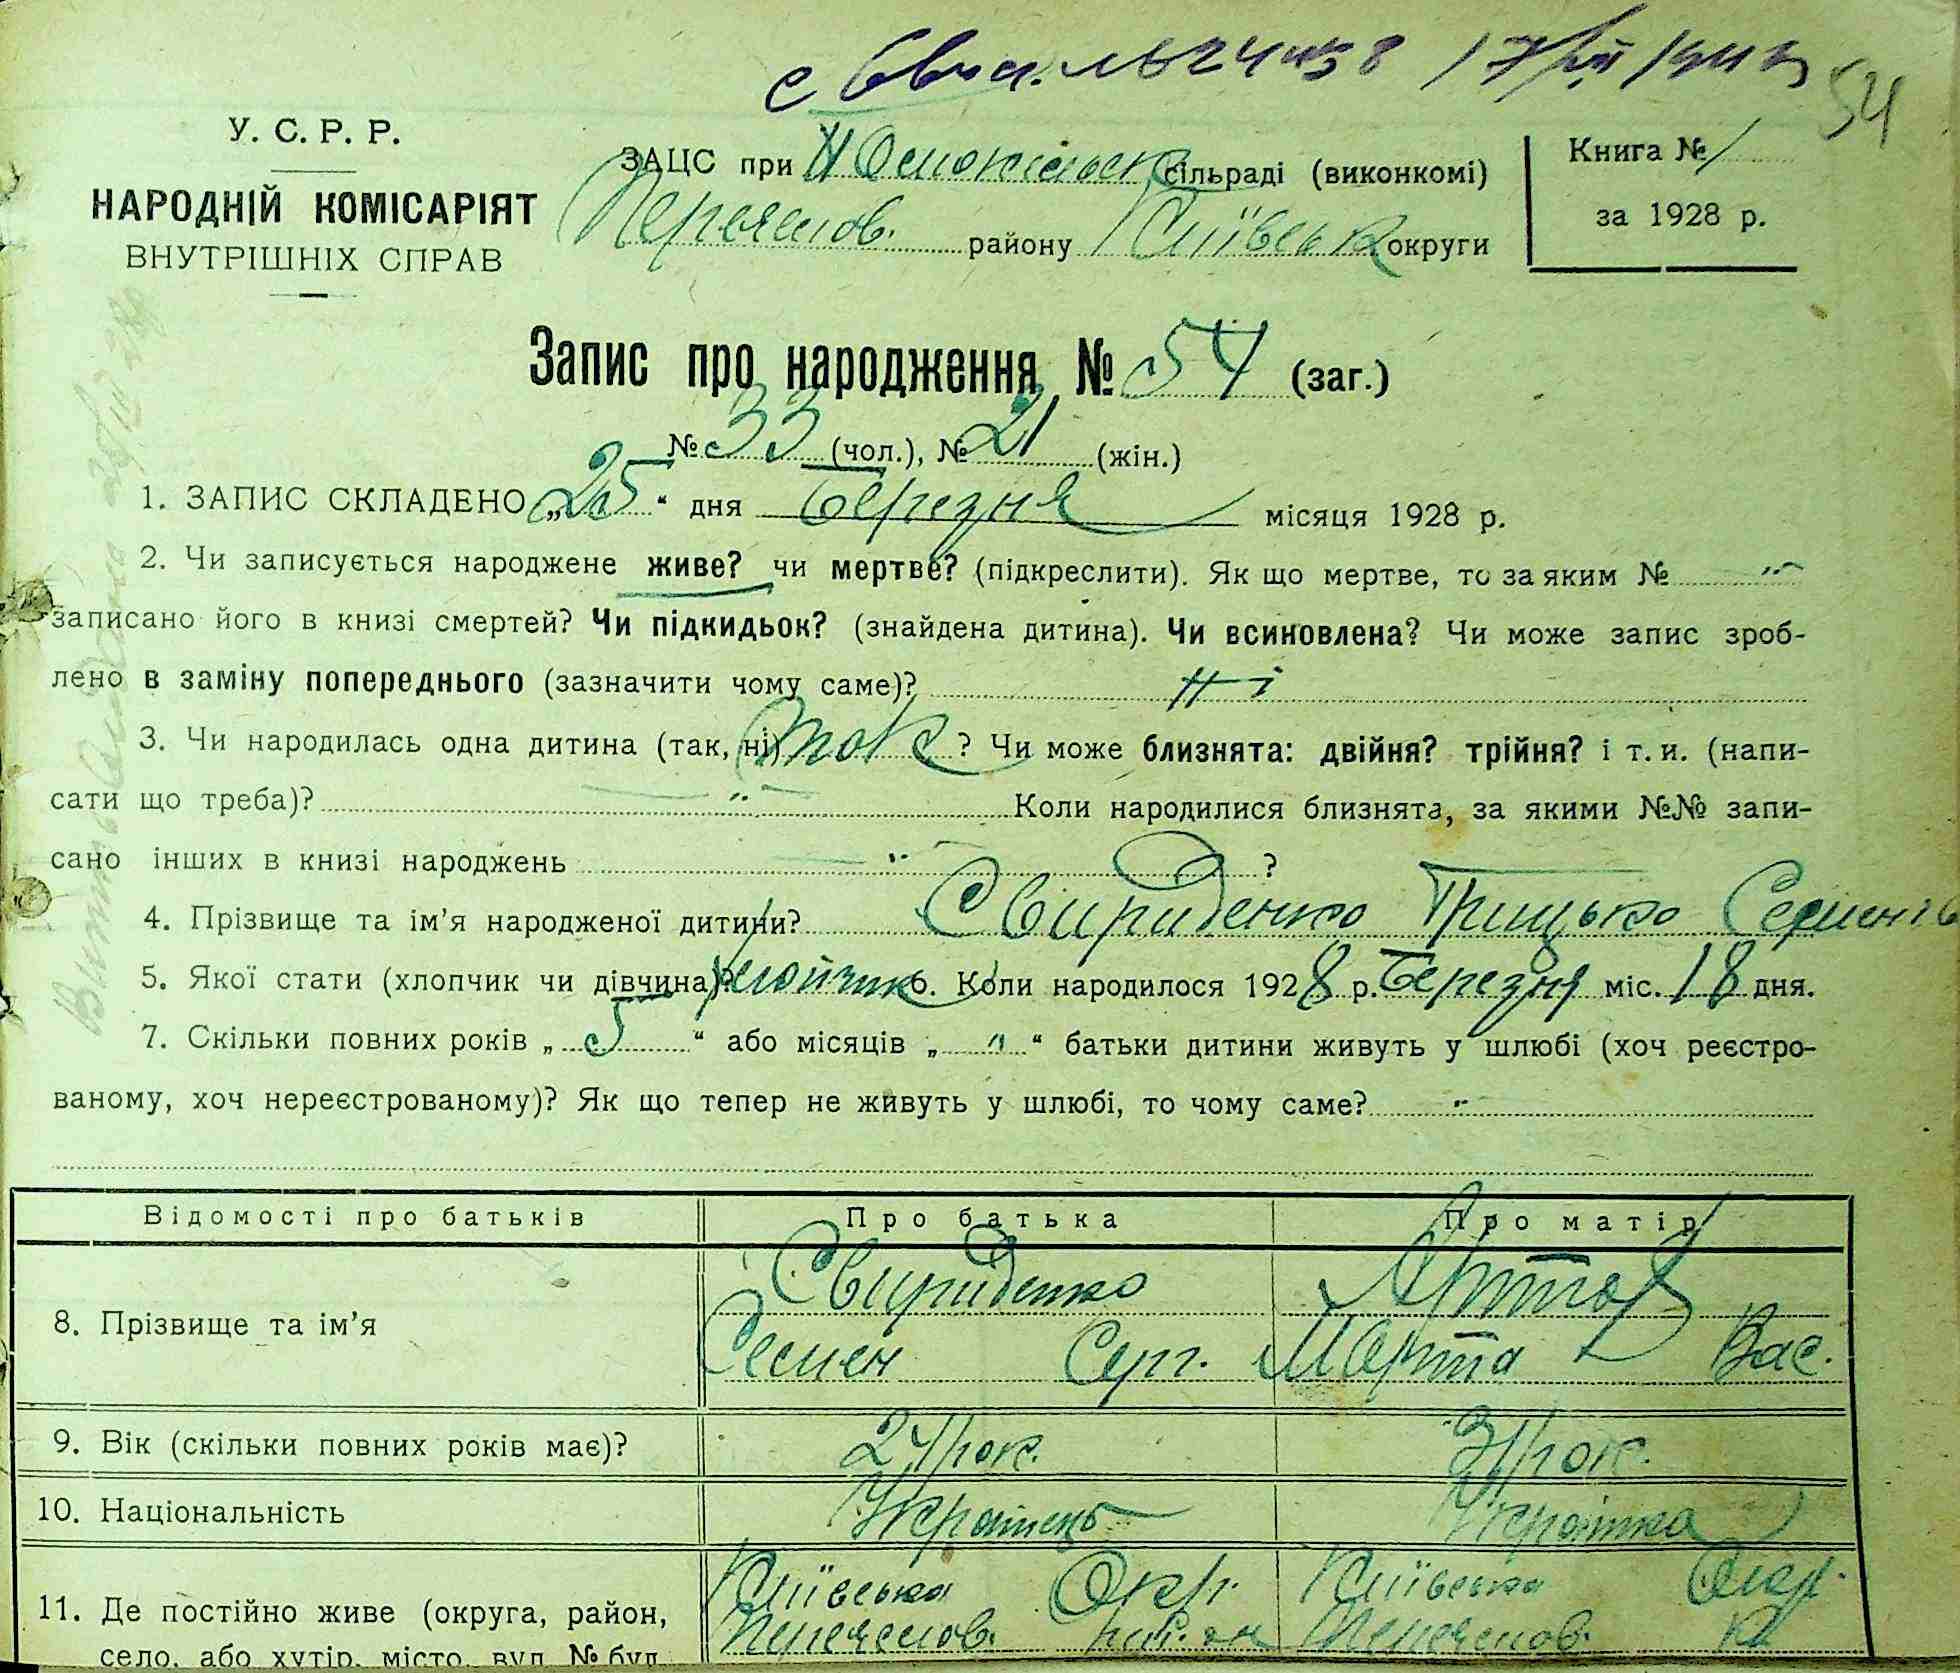 54
У. С. Р. Р.
НАРОДНІЙ КОМІСАРІЯТ
ВНУТРІШНІХ СПРАВ
ЗАЦС при сільраді (виконкомі)
Переяслов. району Київськ округи
Книга № 1
за 1928 р.
Запис про народження № 54 (заг.)
№ 33 (чол.), № 21 (жін.)
1. ЗАПИС СКЛАДЕНО „25“ дня Березня місяця 1928 р.
2. Чи записується народжене живе? чи мертве? (підкреслити). Як що мертве, то за яким № "
записано його в книзі смертей? Чи підкидьок? (знайдена дитина). Чи всиновлена? Чи може запис зроб-
лено в заміну попереднього (зазначити чому саме)? Ні
3. Чи народилась одна дитина (так, ні) так ? Чи може близнята: двійня? трійня? і т. и. (напи-
сати що треба)? " Коли народилися близнята, за якими №№ запи-
сано інших в книзі народжень " ?
4. Прізвище та ім'я народженої дитини? Свириденко Грицько Семенів
5. Якої стати (хлопчик чи дівчина)? хлопчик 6. Коли народилося 1928 р. Березня міс. 18 дня.
7. Скільки повних років „ 5 “ або місяців „ " “ батьки дитини живуть у шлюбі (хоч реєстро-
ваному, хоч нереєстрованому)? Як що тепер не живуть у шлюбі, то чому саме? "
Відомості про батьків Про батька Про матір
8. Прізвище та ім'я
Свириденко
Семен Серг. Марта Вас.
9. Вік (скільки повних років має)? 24 рок. 31 рок.
10. Національність Українець Українка
11. Де постійно живе (округа, район,
село, або хутір, місто, вул. № буд.
Київська Окр. Київська Окр.
Переяслов. район Переяслов.